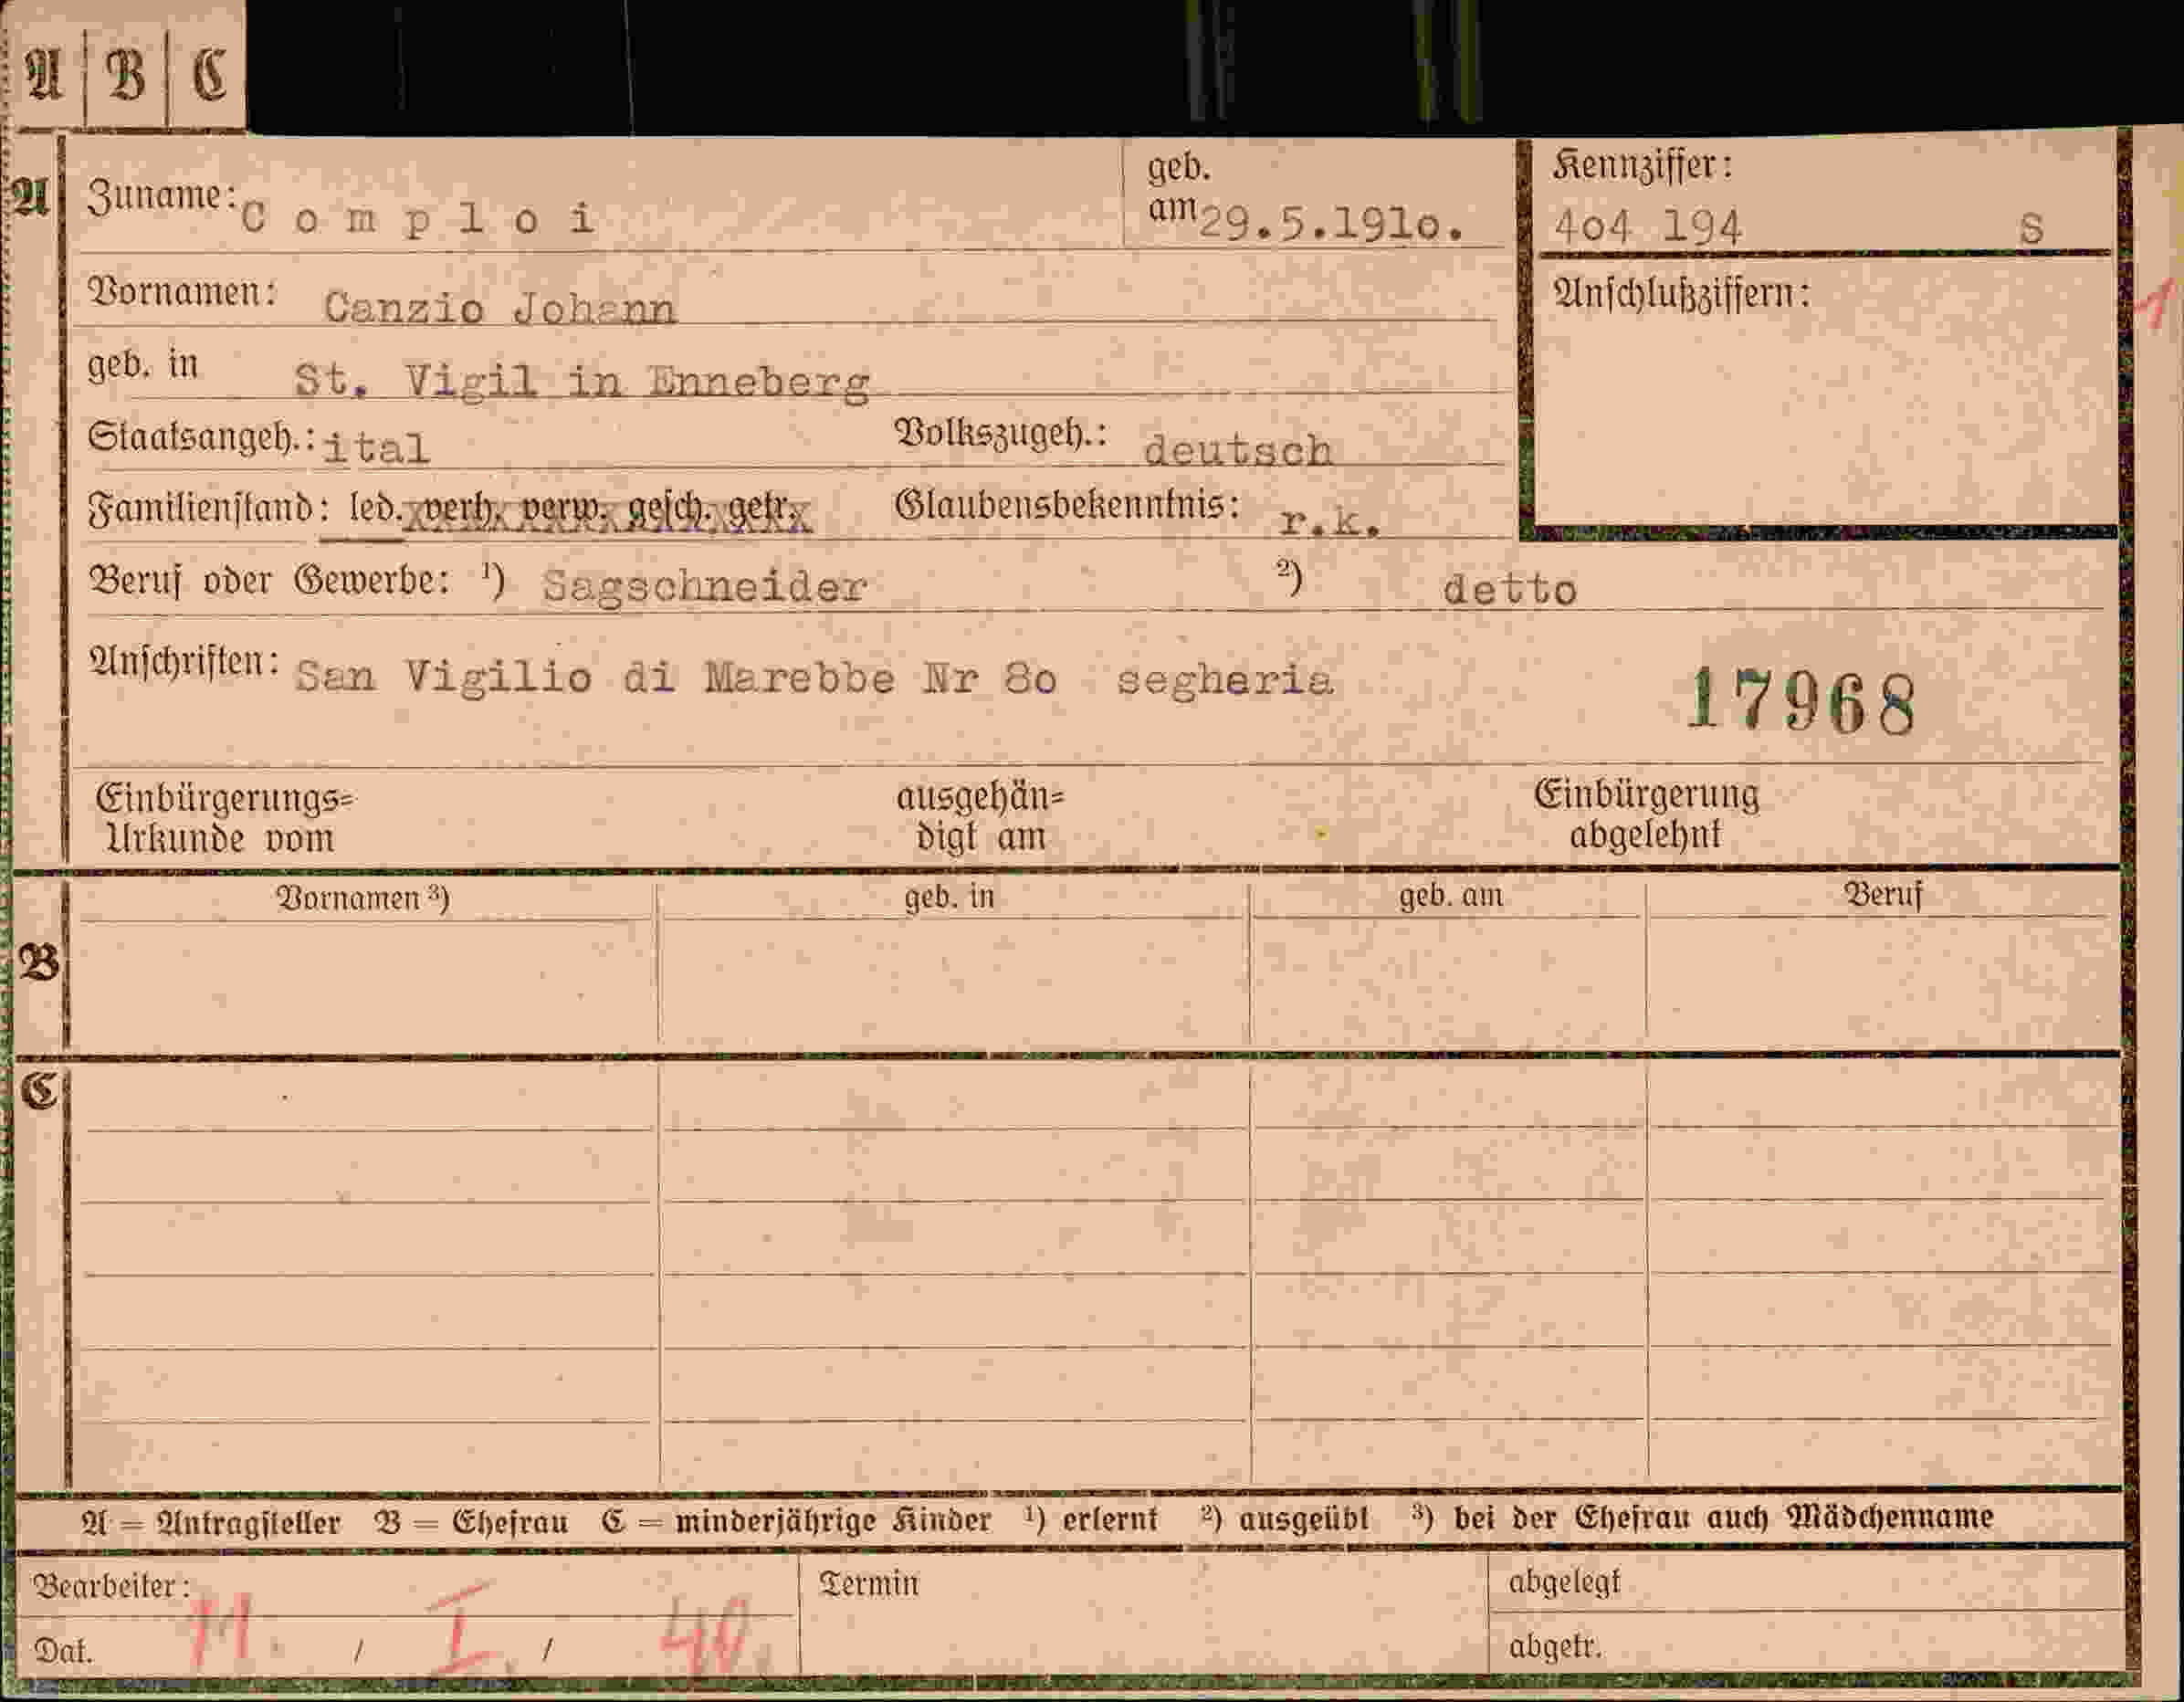 A | B | C
A
Zuname: Comploi
geb. am 29.5.191o.
Kennziffer:
4o4 194 S
Vornamen: Canzio Johann
Anschlußziffern:
1
geb. in St. Vigil in Enneberg
Staatsangeh.: ital
Volkszugeh.: deutsch
Familienstand: led. verh. verw. gesch. getr.
Glaubensbekenntnis: r.k.
Beruf oder Gewerbe: ¹) Sagschneider ²) detto
Anschriften: San Vigilio di Marebbe Nr 8o segheria
17968
Einbürgerungs=
Urkunde vom
ausgehän=
digt am
Einbürgerung
abgelehnt
Vornamen ³) geb. in geb. am Beruf
B
C
A = Antragsteller B = Ehefrau C = minderjährige Kinder ¹) erlernt ²) ausgeübt ³) bei der Ehefrau auch Mädchenname
Bearbeiter:
Termin
abgelegt
Dat. 11. / I. / 40.
abgetr.